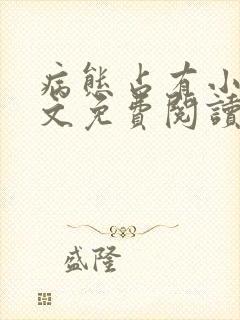 病態占有小
文免費閱讀
盛隆